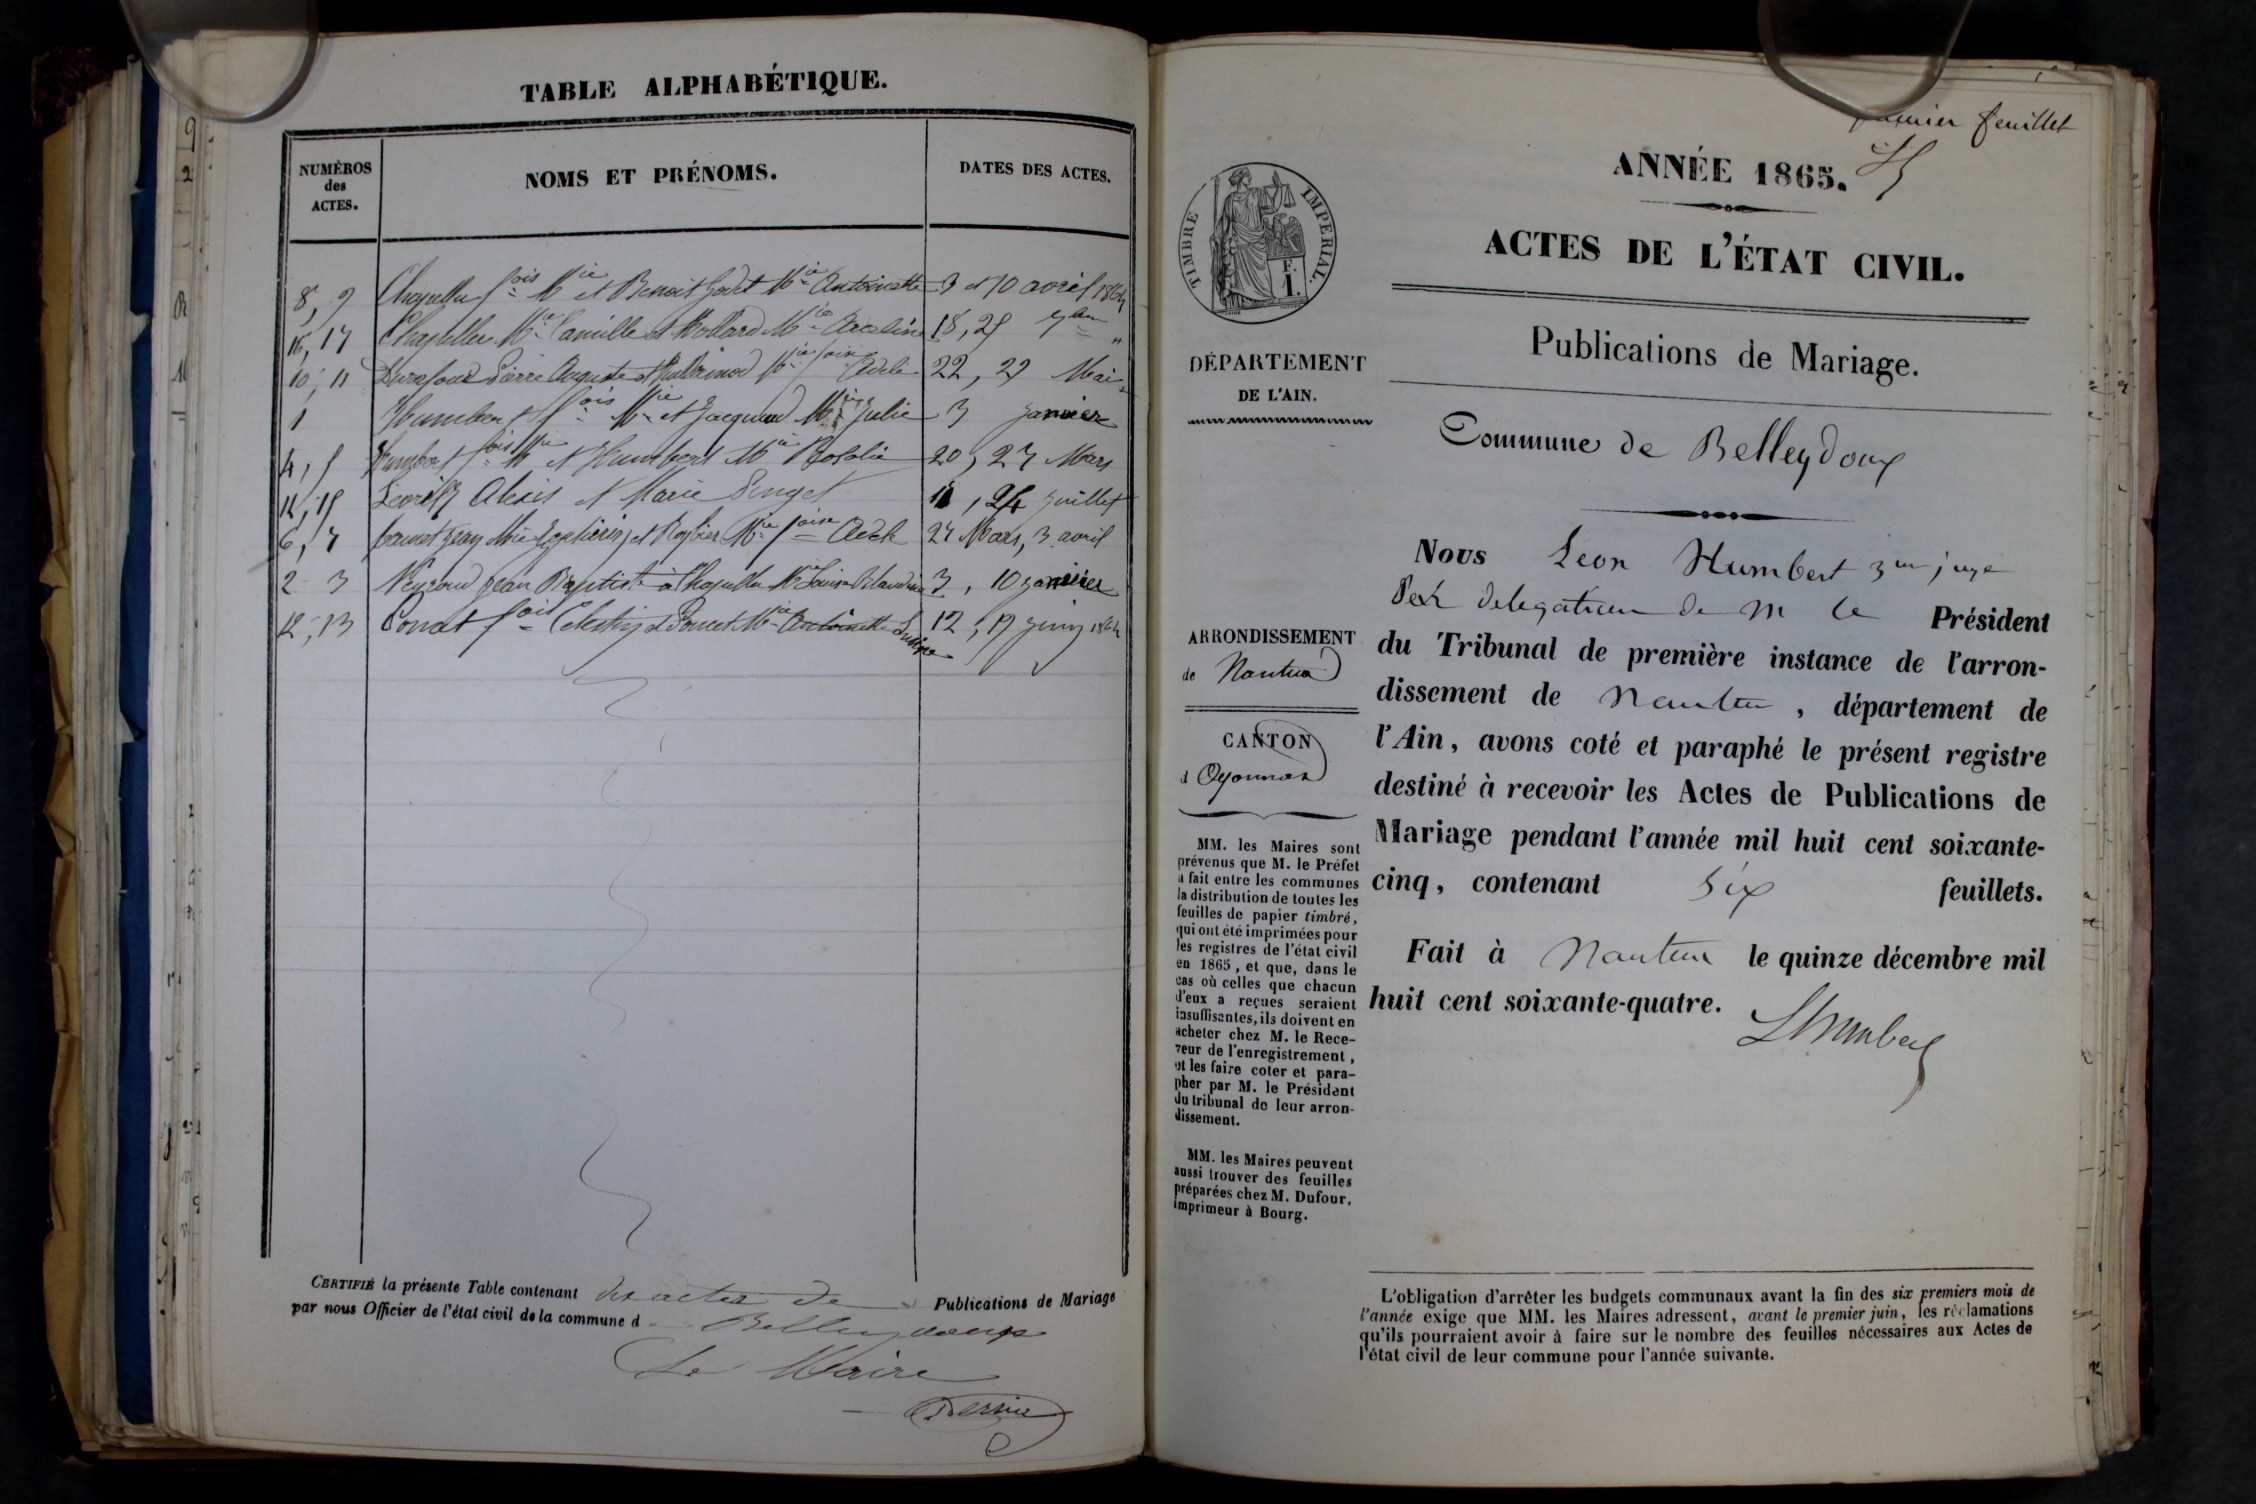 TABLE ALPHABÉTIQUE.
NUMÉROS
des
ACTES.
NOMS ET PRÉNOMS.
DATES DES ACTES.
8, 9 Chapelle f.ois M.ie et Benoit M.ie Antoinette 3 et 10 avril 1864
16, 17 Chapelle M.ie Camille et Mollard M.ie 18, 25 7bre "
10, 11 Pierre Auguste et M.ie f.oise Adele 22, 29 Mai
1 Humbert f.ois M.ie et Jacquand M.ie Julie 3 janvier
4, 5 Humbert f.ois M.ie et Humbert M.ie Rosalie 20, 27 Mars
14, 15 Alexis et Marie juillet
6, 7 jean M.ie et M.ie f.oise Adele 27 Mars, 3 avril
2 - 3 jean Baptiste à Chapelle M.ie Louise 3, 10 janvier
12, 13 Poncet f.ois Celestin et Poncet M.ie Antoinette 12, 19 juin 1864
CERTIFIÉ la présente Table contenant des actes de Publications de Mariage
par nous Officier de l'état civil de la commune d Belleydoux
Le Maire
premier feuillet
ANNÉE 1865.
ACTES DE L'ÉTAT CIVIL.
TIMBRE IMPERIAL.
F.
1.
Publications de Mariage.
DÉPARTEMENT
DE L'AIN.
Commune de Belleydoux
ARRONDISSEMENT
de Nantua
CANTON
d Oyonnax
MM. les Maires sont
prévenus que M. le Préfet
a fait entre les communes
la distribution de toutes les
feuilles de papier timbré,
qui ont été imprimées pour
les registres de l'état civil
en 1865, et que, dans le
cas où celles que chacun
d'eux a reçues seraient
insuffisantes, ils doivent en
acheter chez M. le Rece-
veur de l'enregistrement,
et les faire coter et para-
pher par M. le Président
du tribunal de leur arron-
dissement.
MM. les Maires peuvent
aussi trouver des feuilles
préparées chez M. Dufour,
imprimeur à Bourg.
Nous Leon Humbert juge
par delegation de M le Président
du Tribunal de première instance de l'arron-
dissement de Nantua, département de
l'Ain, avons coté et paraphé le présent registre
destiné à recevoir les Actes de Publications de
Mariage pendant l'année mil huit cent soixante-
cinq, contenant six feuillets.
Fait à Nantua le quinze décembre mil
huit cent soixante-quatre.
LHumbert
L'obligation d'arrêter les budgets communaux avant la fin des six premiers mois de
l'année exige que MM. les Maires adressent, avant le premier juin, les réclamations
qu'ils pourraient avoir à faire sur le nombre des feuilles nécessaires aux Actes de
l'état civil de leur commune pour l'année suivante.